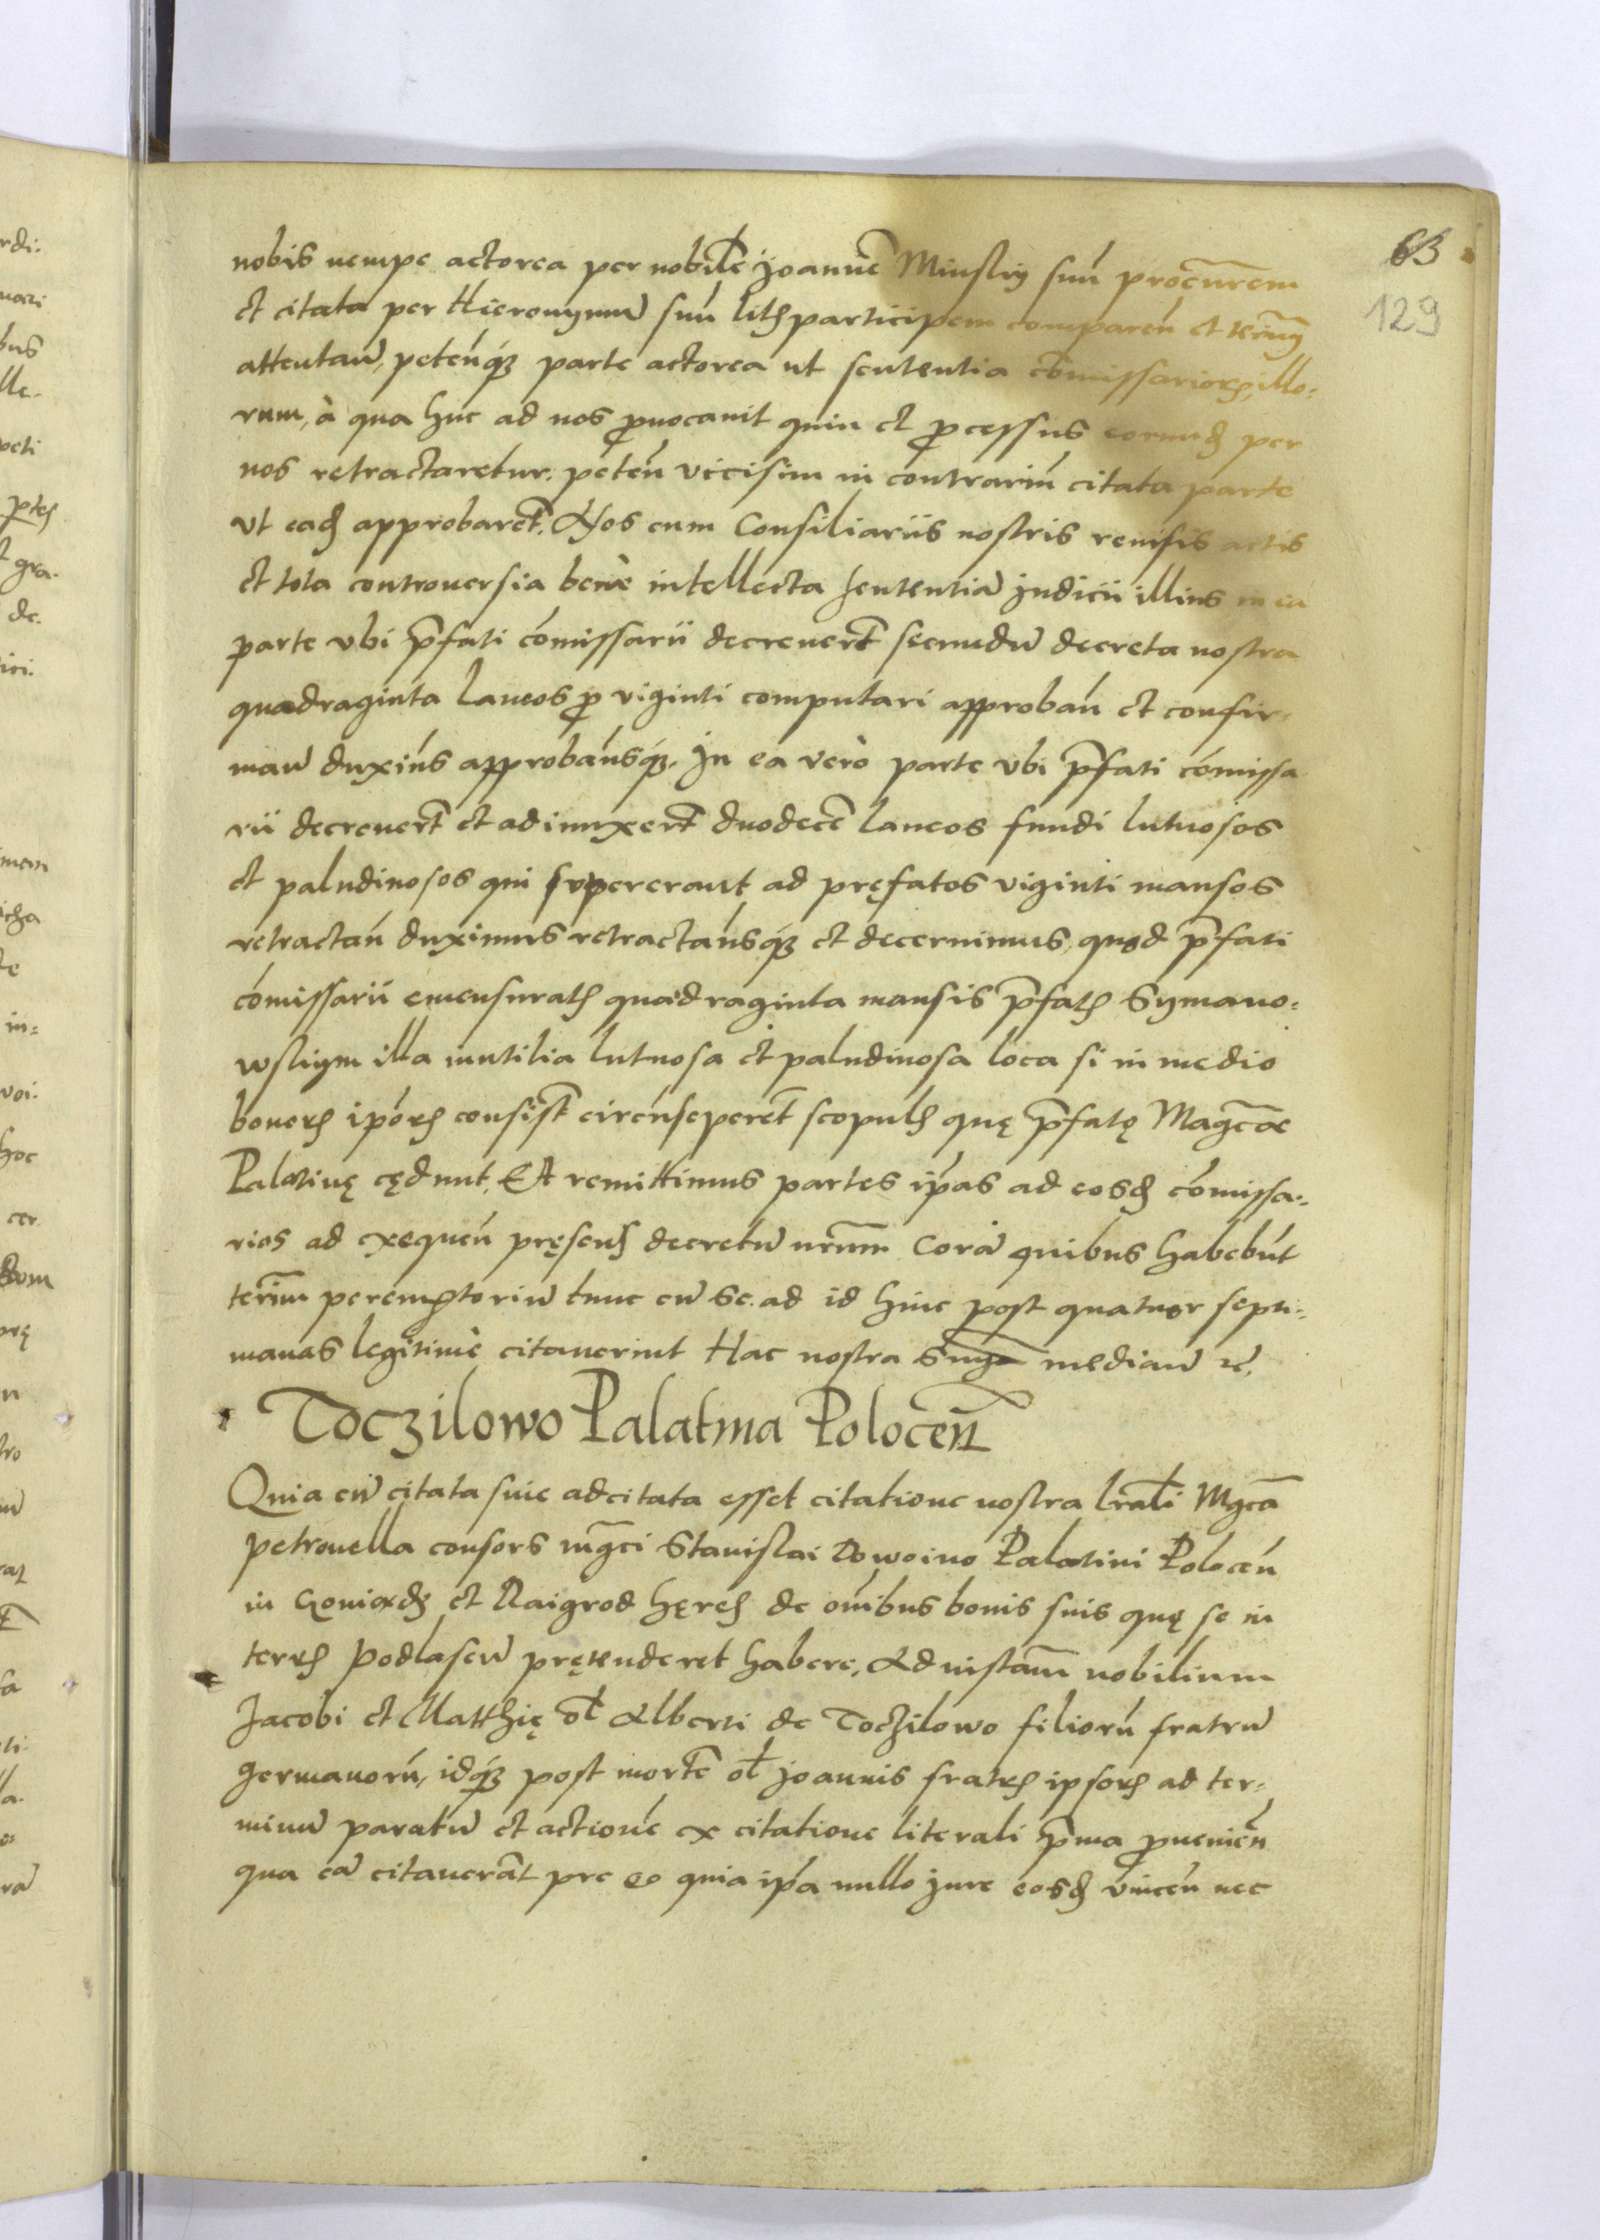 63
129
nobis nempe actorea per nobilē Joannē Minskij suū procurem
et citata per Hieronymum suū litisparticipem comparen̄ et term̄
attentan̄, peten̄q3 parte actorea ut sententia com̄issariorum, illo-
rum, à qua huc ad nos p̱uocauit quin et p̱cessus eorund̄ per
nos retractaretur. peten̄ vicisim in contrariū citata parte
vt ead̄ approbaret̄. Nos cum Consiliariis nostris reuisis actis
et tota controuersia benè intellecta sententiā judicii illius in ea
parte vbi p̄fati com̄issarii decreuert̄ secundū decreta nostra
quadraginta laneos p̱ viginti computari approban̄ et confir-
man̄ duxim̄s approbam̄sq3. In ea verò parte vbi p̄fati com̄issa
rii decreuert̄ et adiunxert̄ duodecē laneos fundi lutuosos
et paludinosos qui supererant ad pręfatos viginti mansos
retractan̄ duximus retractam̄sq3 et decernimus, quod p̄fati
com̄issarii emensuratis quadraginta mansis p̄fatis Symano-
wskijm illa inutilia lutuosa et paludinosa loca si in medio
bonorum ip̄orum consist̄ circum̄seperēt scopulis quę p̄fatę Magcae
Palatinę cędunt. Et remittimus partes ip̄as ad eosd̄ com̄issa-
rios ad exequen̄ pręsens decretū nr̄um Corā quibus habebūt
term̄ peremptoriū tunc cū se ad id hinc post quatuor septi-
manas legitimè citauerint Hac nostra Snīa median̄ etc.
Toczilowo Palatina Polocen̄
Quia cū citata siue adcitata esset citatione nostra lrāli Mgca
Petronella consors mgci Stanislai Dowoino Palatini Polocen̄
in Goniądz et Raigrod hęres de om̄ibus bonis suis quę se in
terris Podlasen̄ prętenderet habere, Ad instam̄ nobilium
Jacobi et Matthię ol̄ Alberti de Toczilowo filiorū fratrū
germanorū, idq3 post mortē ol̄ Joannis fratris ipsorum ad ter-
minū paratū et actionē ex citatione literali p̄ma p̱uenien̄
qua eā citauerāt pre eo quia ip̄a nullo jure eosd̄ vincen̄ nec